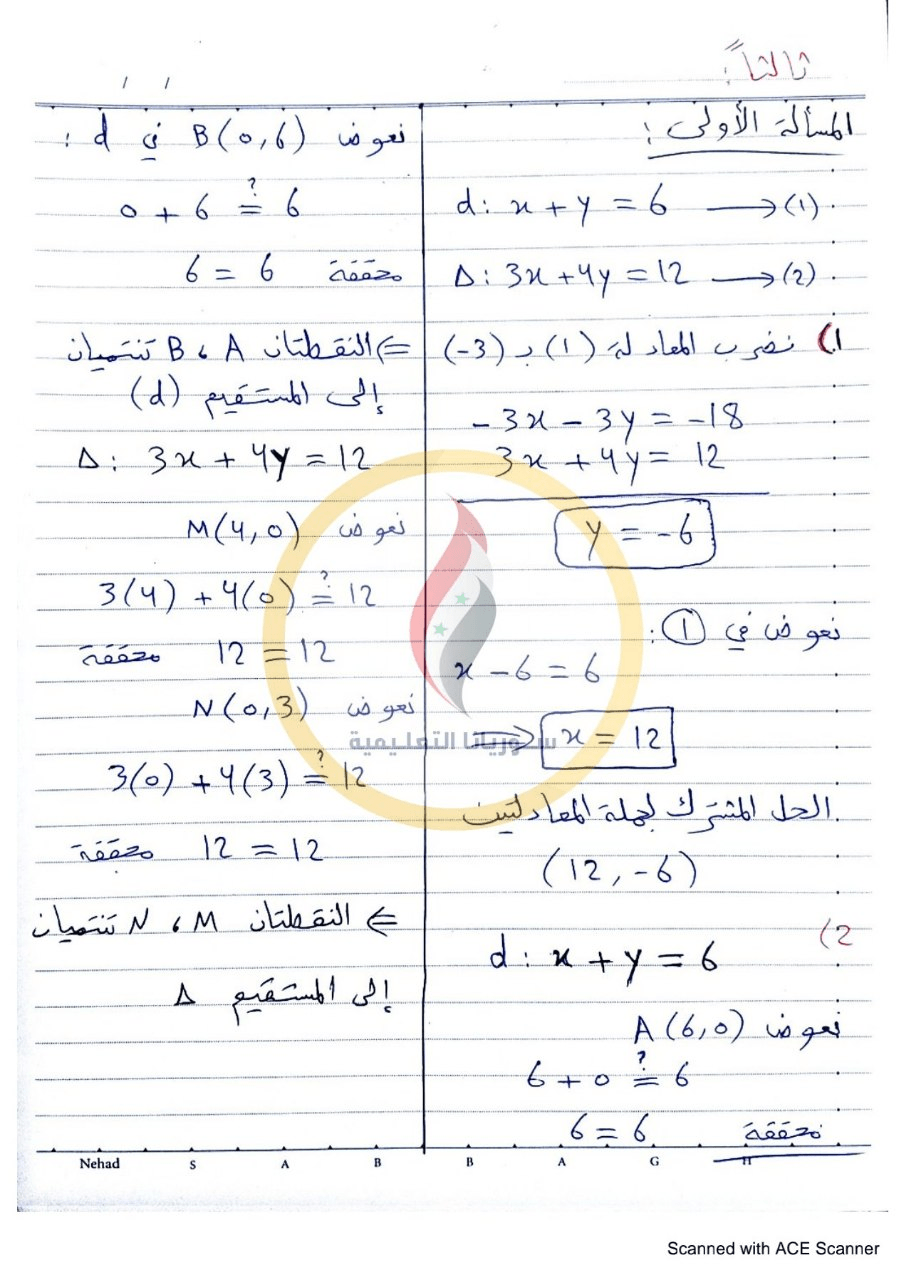 ثالثاً:
/ /
المسألة الأولى:
d: x + y = 6 → (1)
Δ: 3x + 4y = 12 → (2)
1) نضرب المعادلة (1) بـ (-3)
-3x - 3y = -18
3x + 4y = 12
y = -6
نعوض في ①:
x - 6 = 6
⟹ x = 12
الحل المشترك لجملة المعادلتين
(12, -6)
2)
d: x + y = 6
نعوض A(6,0)
6 + 0 ≟ 6
6 = 6 محققة
نعوض B(0,6) في d:
0 + 6 ≟ 6
6 = 6 محققة
⇐ النقطتان A، B تنتميان
إلى المستقيم (d)
Δ: 3x + 4y = 12
نعوض M(4,0)
3(4) + 4(0) ≟ 12
12 = 12 محققة
نعوض N(0,3)
3(0) + 4(3) ≟ 12
12 = 12 محققة
⇐ النقطتان M، N تنتميان
إلى المستقيم Δ
سوريانا التعليمية
Nehad S A B B A G H
Scanned with ACE Scanner